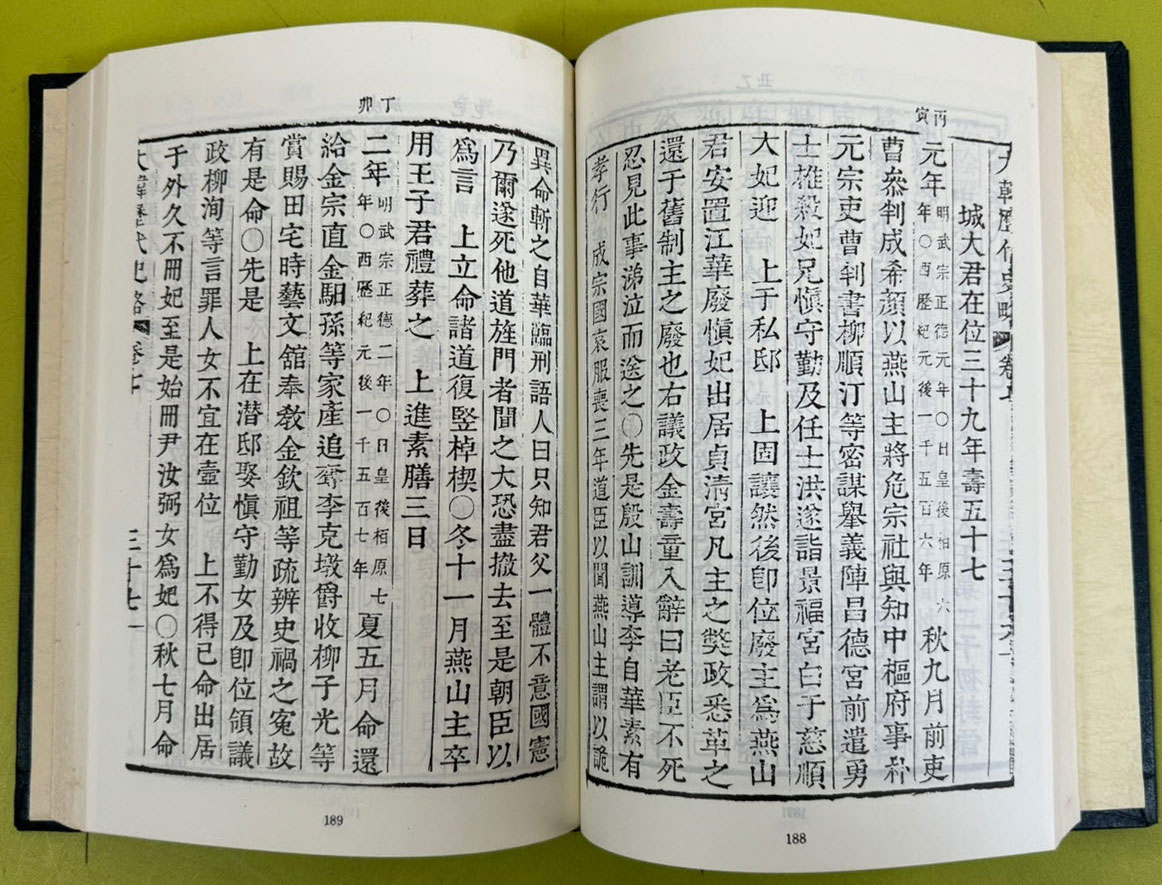 丙寅
大韓歷代史略 卷七 三十六
城大君在位三十九年壽五十七
元年明武宗正德元年〇日皇後柏原六年〇西歷紀元後一千五百六年秋九月前吏
曹叅判成希顔以燕山主將危宗社與知中樞府事朴
元宗吏曹判書柳順汀等密謀擧義陣昌德宮前遣勇
士雄殺妃兄愼守勤及任士洪遂詣景福宮白于慈順
大妃迎 上于私邸 上固讓然後卽位廢主爲燕山
君安置江華廢愼妃出居貞淸宮凡主之獘政悉革之
還于舊制主之廢也右議政金壽童入辭曰老臣不死
忍見此事涕泣而送之〇先是殷山訓導李自華素有
孝行 成宗國哀服喪三年道臣以聞燕山主謂以詭
188
丁卯
異命斬之自華臨刑語人曰只知君父一體不意國憲
乃爾遂死他道旌門者聞之大恐盡撤去至是朝臣以
爲言 上立命諸道復竪棹楔〇冬十一月燕山主卒
用王子君禮葬之 上進素膳三日
二年明武宗正德二年〇日皇後柏原七年〇西歷紀元後一千五百七年夏五月命還
給金宗直金馹孫等家產追奪李克墩爵收柳子光等
賞賜田宅時藝文舘奉敎金欽祖等疏辨史禍之寃故
有是命〇先是 上在潛邸娶愼守勤女及卽位領議
政柳洵等言罪人女不宜在壼位 上不得已命出居
于外久不冊妃至是始冊尹汝弼女爲妃〇秋七月命
大韓歷代史略 卷七 三十七
189